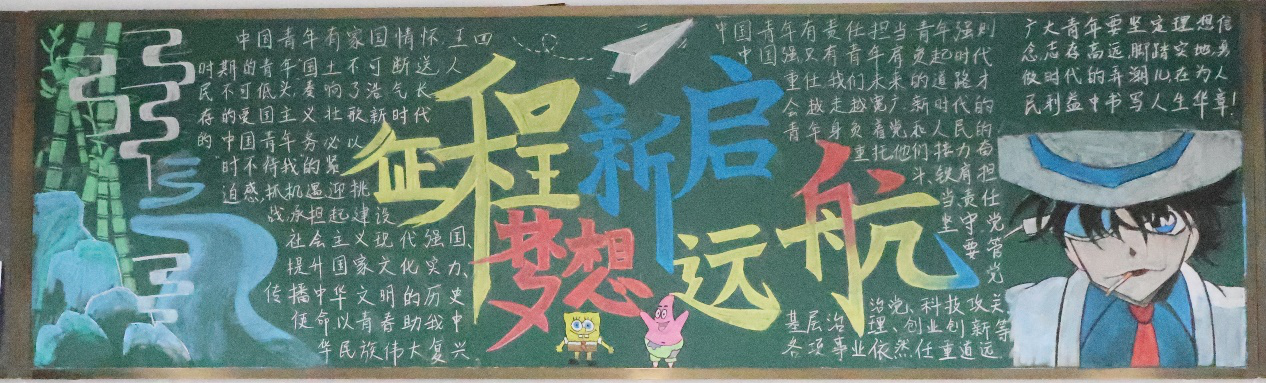 中国青年有家国情怀.五四
时期的青年国土不可断送、人
民不可低头,奏响了浩气长
存的爱国主义壮歌新时代
的中国青年务必以
"时不待我"的紧
迫感,抓机遇迎挑
战,承担起建设
社会主义现代强国、
提升国家文化实力、
传播中华文明的历史
使命以青春助我中
华民族伟大复兴
征程新启
梦想远航
中国青年有责任担当青年强则
中国强又有青年肩负起时代
重任我们未来的道路才
会越走越宽广新时代的
青年身负着党和人民的
重托他们接力奋
斗,较有担
当责任
坚守党
要管党
治党、科技攻关
基层治理、创业创新等
各项事业依然任重道远
广大青年要坚定理想信
念,志存高远,脚踏实地,勇
做时代的弄潮儿,在为人
民利益中书写人生华章!